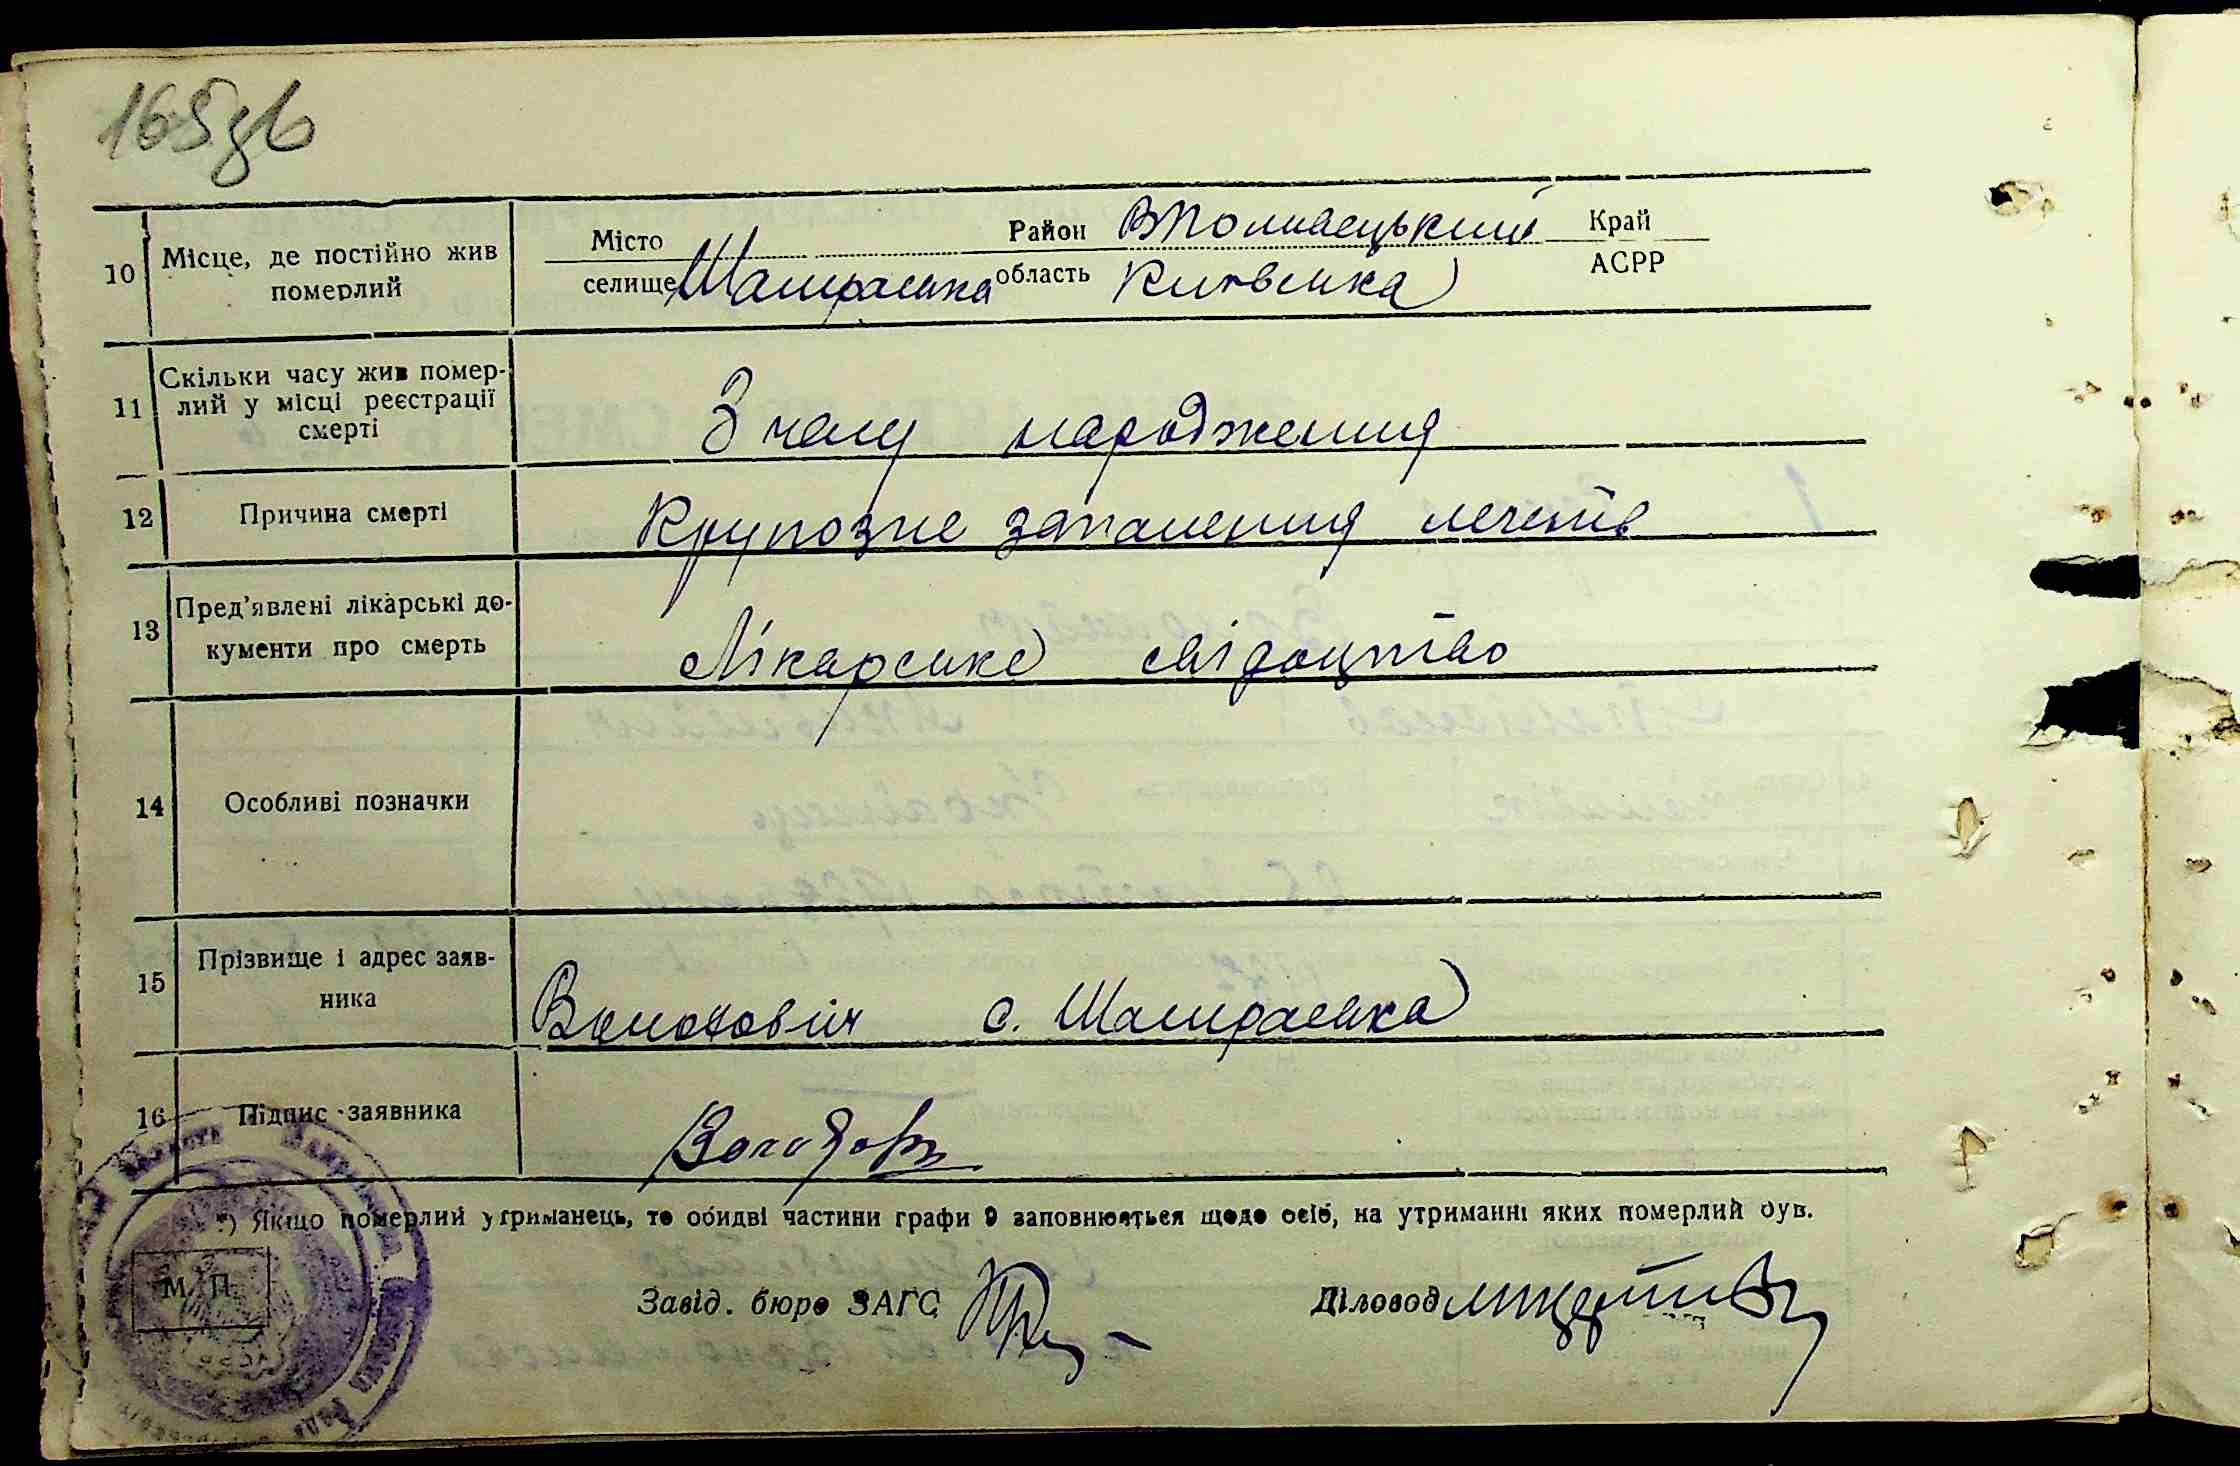 165зв
Місто Район ВПоловецький Край
10 Місце, де постійно жив померлий селище Шамраївка область Київська АСРР
11 Скільки часу жив помер-
лий у місці реєстрації
смерті
З часу народження
12 Причина смерті Крупозне запалення легенів
13 Пред'явлені лікарські до-
кументи про смерть
Лікарське свідоцтво
14 Особливі позначки
15 Прізвище і адрес заяв-
ника
с. Шамраївка
16 Підпис заявника
*) Якщо померлий утриманець, то обидві частини графи 9 заповнюються щодо осіб, на утриманні яких померлий був.
М. П.
Завід. бюро ЗАГС Діловод